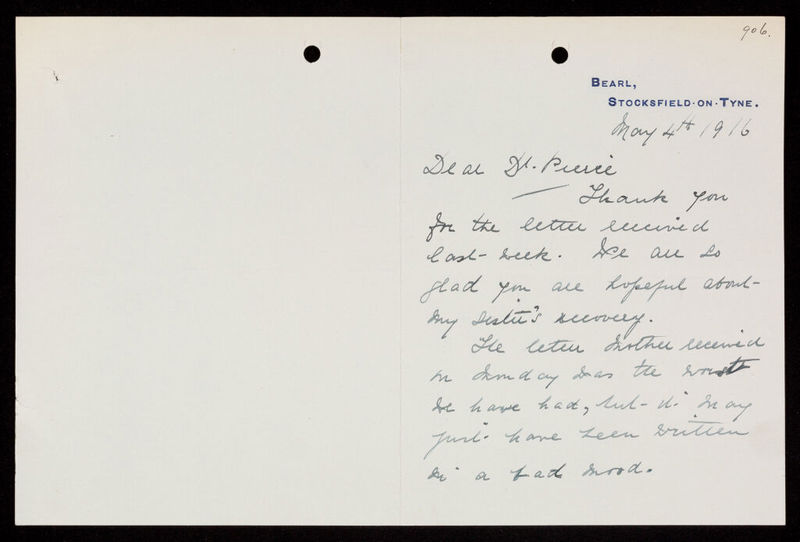 906.
BEARL,
STOCKSFIELD-ON-TYNE.
May 4th 1916
Dear Dr. Pierce
Thank you
for the letter received
last week. We are so
glad you are hopeful about
my sister's recovery.
The letter Mother received
on Monday was the worst
we have had, but it may
just have been written
in a bad mood.